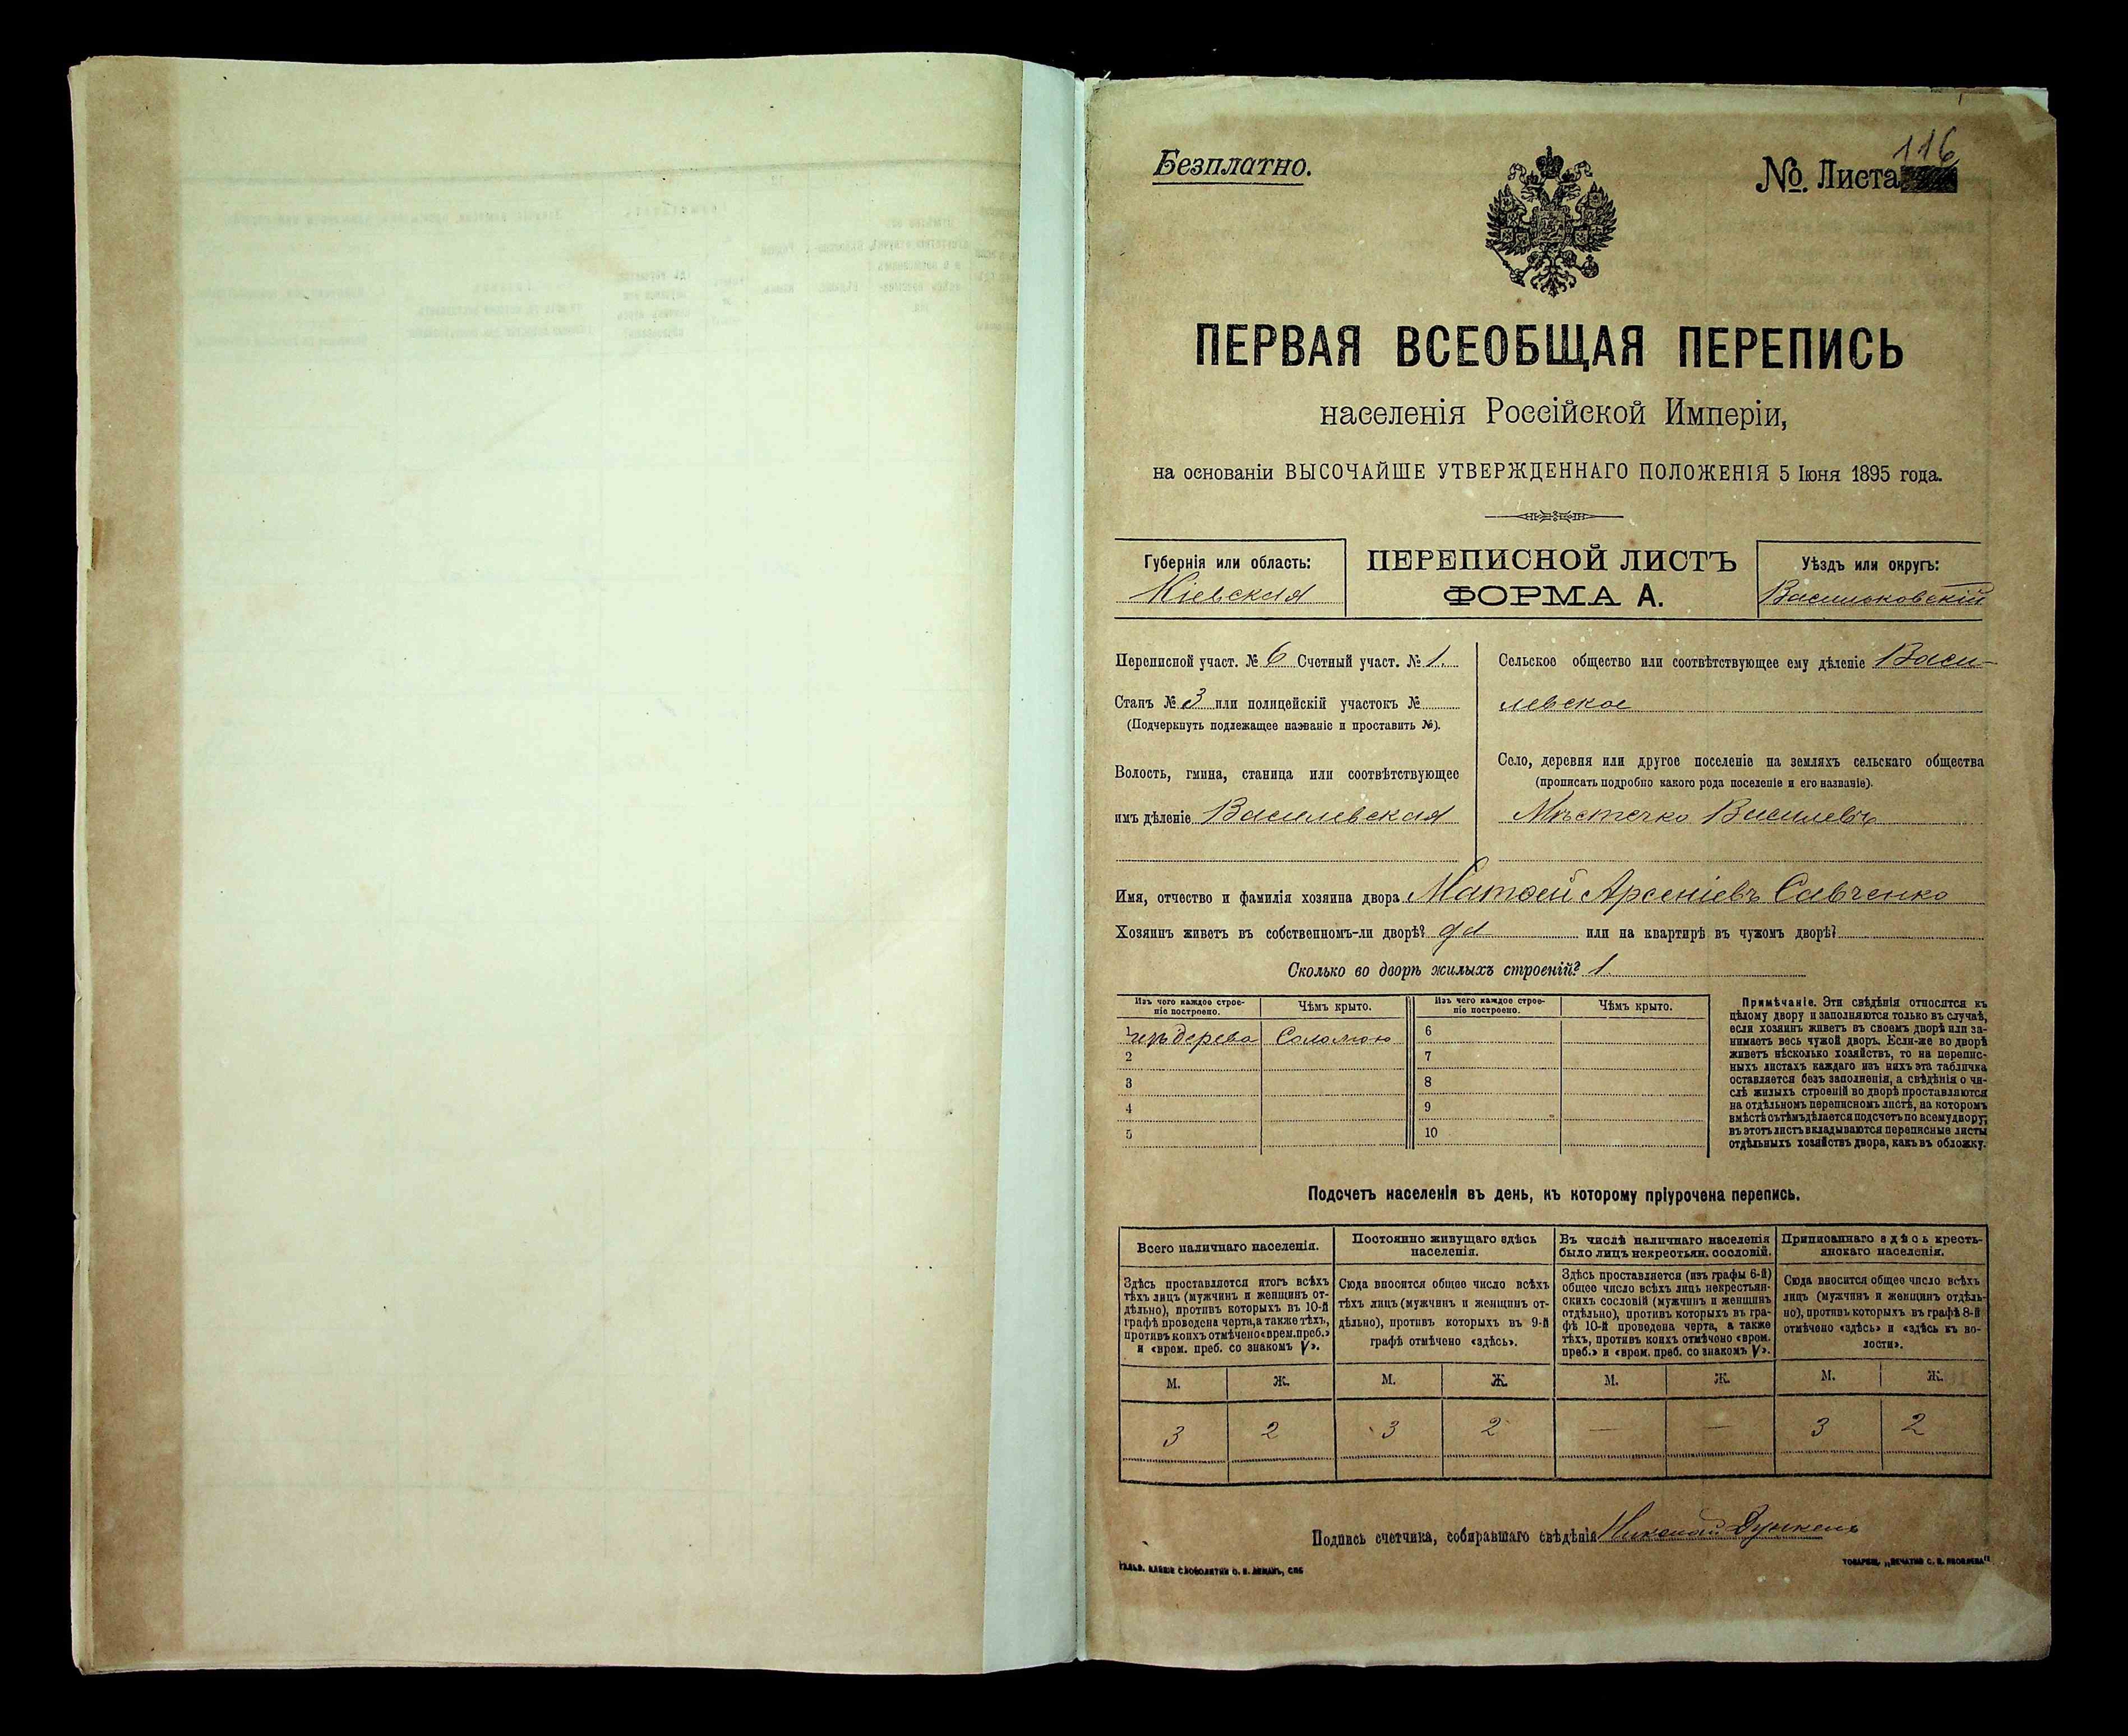 116
Безплатно.
№. Листа
ПЕРВАЯ ВСЕОБЩАЯ ПЕРЕПИСЬ
населенія Россійской Имперіи,
на основаніи ВЫСОЧАЙШЕ УТВЕРЖДЕННАГО ПОЛОЖЕНІЯ 5 Іюня 1895 года.
Губернія или область:
Кіевская
ПЕРЕПИСНОЙ ЛИСТЪ
ФОРМА А.
Уѣздъ или округъ:
Васильковскій
Переписной участ. № 6 Счетный участ. № 1.
Станъ № 3 или полицейскій участокъ №
(Подчеркнуть подлежащее названіе и проставить №).
Волость, гмина, станица или соотвѣтствующее
имъ дѣленіе Василевская
Сельское общество или соотвѣтствующее ему дѣленіе Васи-
левское
Село, деревня или другое поселеніе на земляхъ сельскаго общества
(прописать подробно какого рода поселеніе и его названіе).
Мѣстечко Василевъ
Имя, отчество и фамилія хозяина двора Матѳей Арсеніевъ Савченко
Хозяинъ живетъ въ собственномъ-ли дворѣ? да или на квартирѣ въ чужомъ дворѣ?
Сколько во дворѣ жилыхъ строеній? 1.
Изъ чего каждое строе-
ніе построено.
Чѣмъ крыто.
Изъ чего каждое строе-
ніе построено.
Чѣмъ крыто.
1 изъ дерева Соломою 6
2 7
3 8
4 9
5 10
Примѣчаніе. Эти свѣдѣнія относятся къ
цѣлому двору и заполняются только въ случаѣ,
если хозяинъ живетъ въ своемъ дворѣ или за-
нимаетъ весь чужой дворъ. Если-же во дворѣ
живетъ нѣсколько хозяйствъ, то на перепис-
ныхъ листахъ каждаго изъ нихъ эта табличка
оставляется безъ заполненія, а свѣдѣнія о чи-
слѣ жилыхъ строеній во дворѣ проставляются
на отдѣльномъ переписномъ листѣ, на которомъ
вмѣстѣ съ тѣмъ дѣлается подсчетъ по всему двору;
въ этотъ листъ вкладываются переписные листы
отдѣльныхъ хозяйствъ двора, какъ въ обложку.
Подсчетъ населенія въ день, къ которому пріурочена перепись.
Всего наличнаго населенія.
Здѣсь проставляется итогъ всѣхъ
тѣхъ лицъ (мужчинъ и женщинъ от-
дѣльно), противъ которыхъ въ 10-й
графѣ проведена черта, а также тѣхъ,
противъ коихъ отмѣчено «врем. преб.»
и «врем. преб. со знакомъ V».
Постоянно живущаго здѣсь
населенія.
Сюда вносится общее число всѣхъ
тѣхъ лицъ (мужчинъ и женщинъ от-
дѣльно), противъ которыхъ въ 9-й
графѣ отмѣчено «здѣсь».
Въ числѣ наличнаго населенія
было лицъ некрестьян. сословій.
Здѣсь проставляется (изъ графы 6-й)
общее число всѣхъ лицъ некрестьян-
скихъ сословій (мужчинъ и женщинъ
отдѣльно), противъ которыхъ въ гра-
фѣ 10-й проведена черта, а также
тѣхъ, противъ коихъ отмѣчено «врем.
преб.» и «врем. преб. со знакомъ V».
Приписаннаго здѣсь кресть-
янскаго населенія.
Сюда вносится общее число всѣхъ
лицъ (мужчинъ и женщинъ отдѣль-
но), противъ которыхъ въ графѣ 8-й
отмѣчено «здѣсь» и «здѣсь въ во-
лости».
М. Ж. М. Ж. М. Ж. М. Ж.
3 2 3 2 — — 3 2
Подпись счетчика, собиравшаго свѣдѣнія Николай
ТОВАРИЩ. „ПЕЧАТНЯ С. П. ЯКОВЛЕВА"